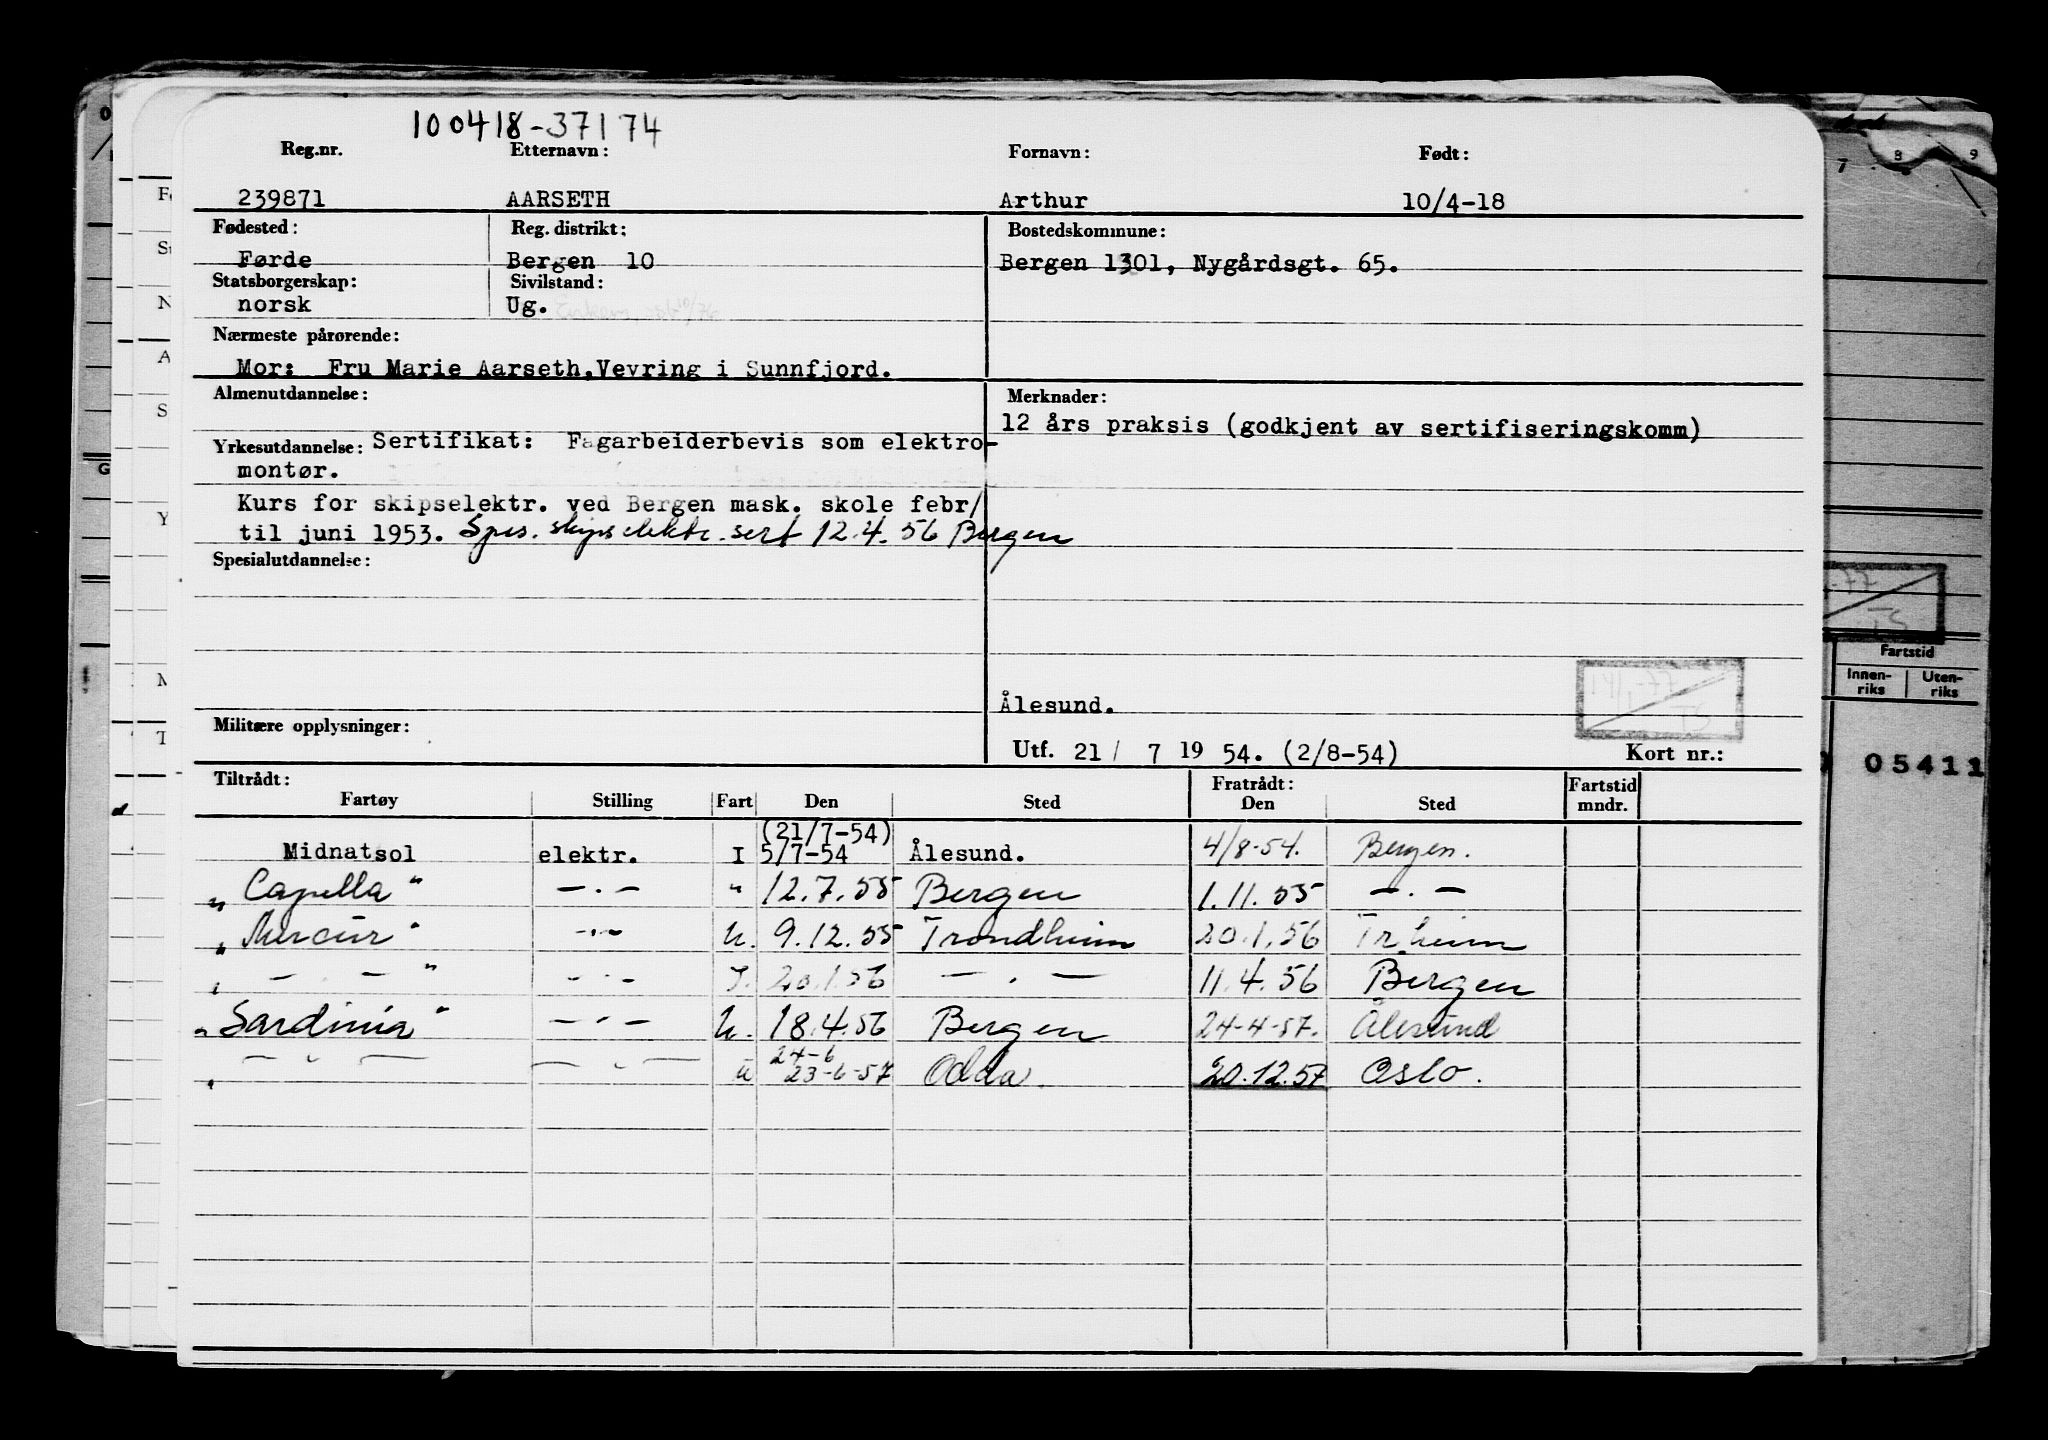 100418-37174
Reg.nr. Etternavn: Fornavn: Født:
239871 AARSETH Arthur 10/4-18
Fødested: Reg. distrikt: Bostedskommune:
Førde Bergen 10 Bergen 1301, Nygårdsgt. 65.
Statsborgerskap: Sivilstand:
norsk Ug.
Nærmeste pårørende:
Mor: Fru Marie Aarseth, Vevring i Sunnfjord.
Almenutdannelse: Merknader:
12 års praksis (godkjent av sertifiseringskomm)
Yrkesutdannelse: Sertifikat: Fagarbeiderbevis som elektro-
montør.
Kurs for skipselektr. ved Bergen mask. skole febr/
til juni 1953. Spes. skipselektr. sert 12.4.56 Bergen
Spesialutdannelse:
Ålesund.
Militære opplysninger:
Utf. 21/ 7 19 54. (2/8-54) Kort nr.:
Tiltrådt: Fratrådt: Fartstid
Fartøy Stilling Fart Den Sted Den Sted mndr.
(21/7-54)
Midnatsol elektr. I 5/7-54 Ålesund. 4/8-54. Bergen.
„Capella" —·— " 12.7.55 Bergen 1.11.55 —·—
„Mercur" —·— U. 9.12.55 Trondheim 20.1.56 Trheim
„ —·— " —·— I. 20.1.56 —·— 11.4.56 Bergen
„Sardinia" —·— U. 18.4.56 Bergen 24-4-57. Ålesund
24-6
„ —"— —"— U 23-6-57 Odda. 20.12.57 Oslo.
7 8 9
-77
TS
Fartstid
Innen-
riks Uten-
riks
05411